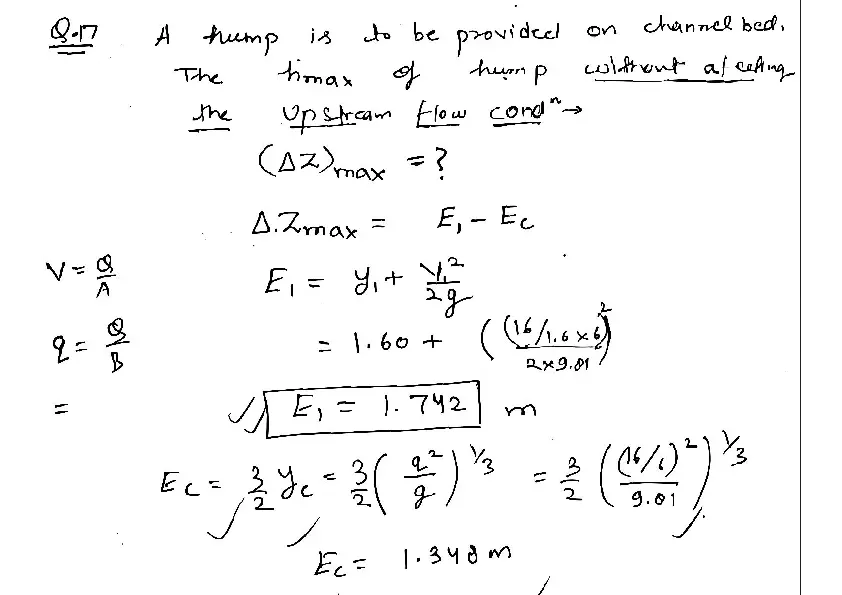 Q.17 A hump is to be provided on channel bed.
The hmax of hump without affecting
the Upstream flow condⁿ →
(ΔZ)max = ?
Δ.Zmax = E₁ - Ec
V = Q/A E₁ = y₁ + V₁²/2g
q = Q/B = 1.60 + ((16/1.6×6)²/2×9.81)
= E₁ = 1.742 m
Ec = 3/2 yc = 3/2 (q²/g)^1/3 = 3/2 ((16/6)²/9.81)^1/3
Ec = 1.348 m